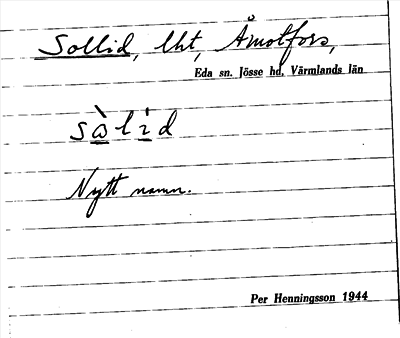 Sollid, lht, Åmotfors,
Eda sn. Jösse hd. Värmlands län
sàlìd
Nytt namn.
Per Henningsson 1944